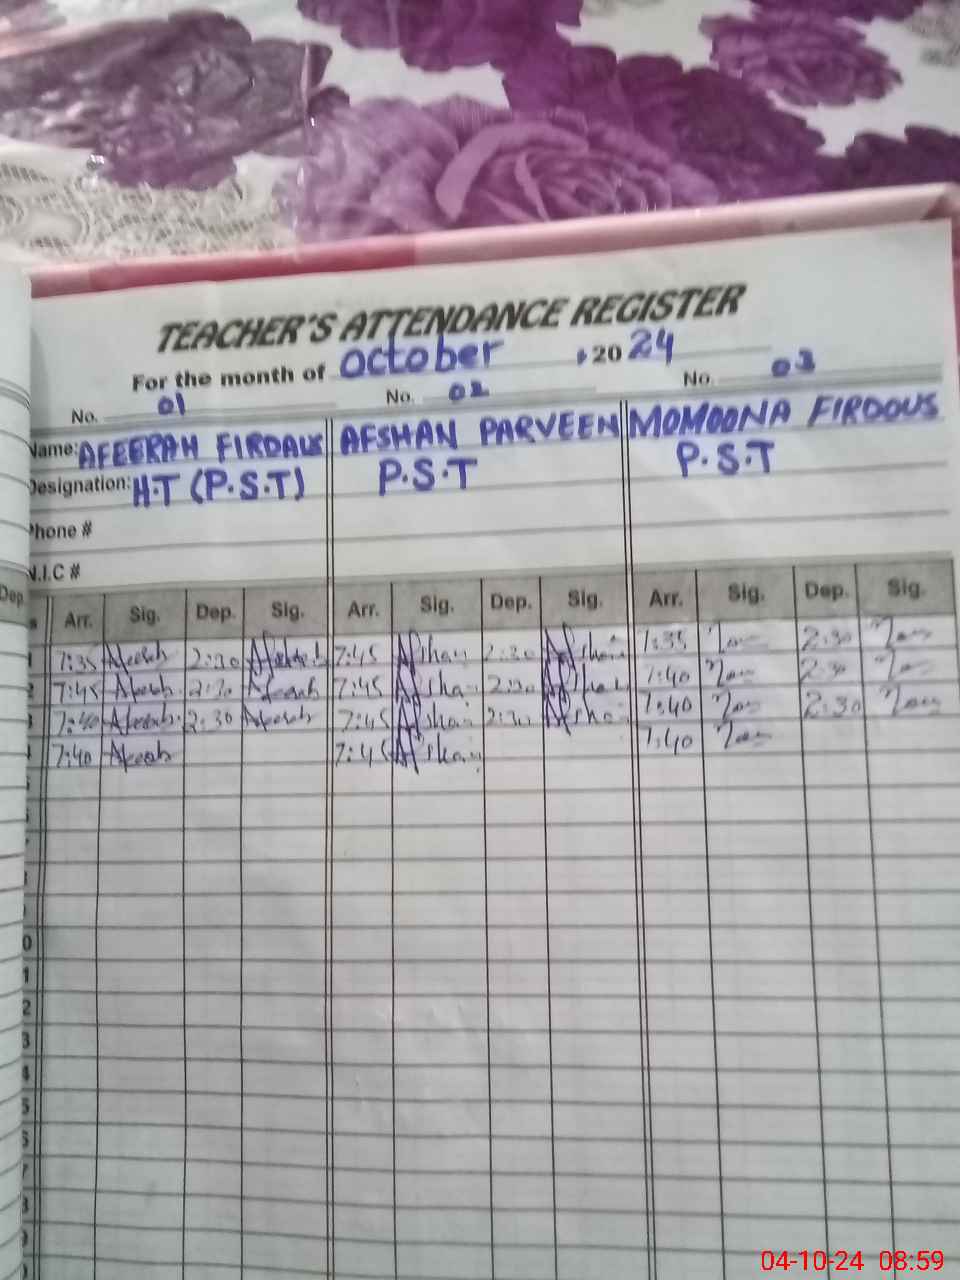 TEACHER'S ATTENDANCE REGISTER
For the month of October 2024
No. 01 No. 02 No. 03
Name: AFEERAH FIRDAUS AFSHAN PARVEEN MOMOONA FIRDOUS
Designation: H.T (P.S.T) P.S.T P.S.T
Phone #
N.I.C #
Dep. Arr. Sig. Dep. Sig. Arr. Sig. Dep. Sig. Arr. Sig. Dep. Sig.
1 7:35 Afeerah 2:30 Afeerah 7:45 Afshan 2:30 Afshan 7:35 2:30
2 7:45 Afeerah 2:30 Afeerah 7:45 Afshan 2:30 Afshan 7:40 2:30
3 7:40 Afeerah 2:30 Afeerah 7:45 Afshan 2:30 Afshan 7:40 2:30
4 7:40 Afeerah 7:45 Afshan 7:40
0
1
2
3
4
5
6
7
8
04-10-24 08:59